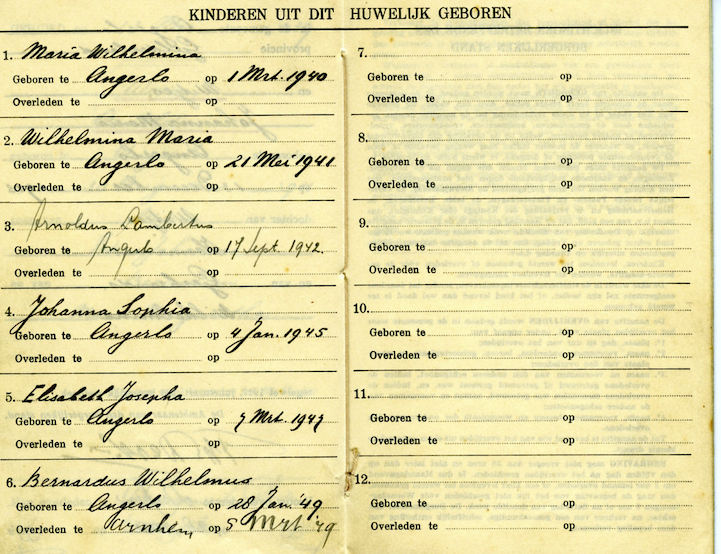 KINDEREN UIT DIT HUWELIJK GEBOREN
1. Maria Wilhelmina
Geboren te Angerlo op 1 Mrt. 1940
Overleden te op
2. Wilhelmina Maria
Geboren te Angerlo op 21 Mei 1941
Overleden te op
3. Arnoldus Lambertus
Geboren te Angerlo op 17 Sept. 1942.
Overleden te op
4. Johanna Sophia
Geboren te Angerlo op 4 Jan. 1945
Overleden te op
5. Elisabeth Josepha
Geboren te Angerlo op 7 Mrt. 1947
Overleden te op
6. Bernardus Wilhelmus
Geboren te Angerlo op 28 Jan. '49
Overleden te Arnhem op 5 Mrt '49
7.
Geboren te op
Overleden te op
8.
Geboren te op
Overleden te op
9.
Geboren te op
Overleden te op
10.
Geboren te op
Overleden te op
11.
Geboren te op
Overleden te op
12.
Geboren te op
Overleden te op